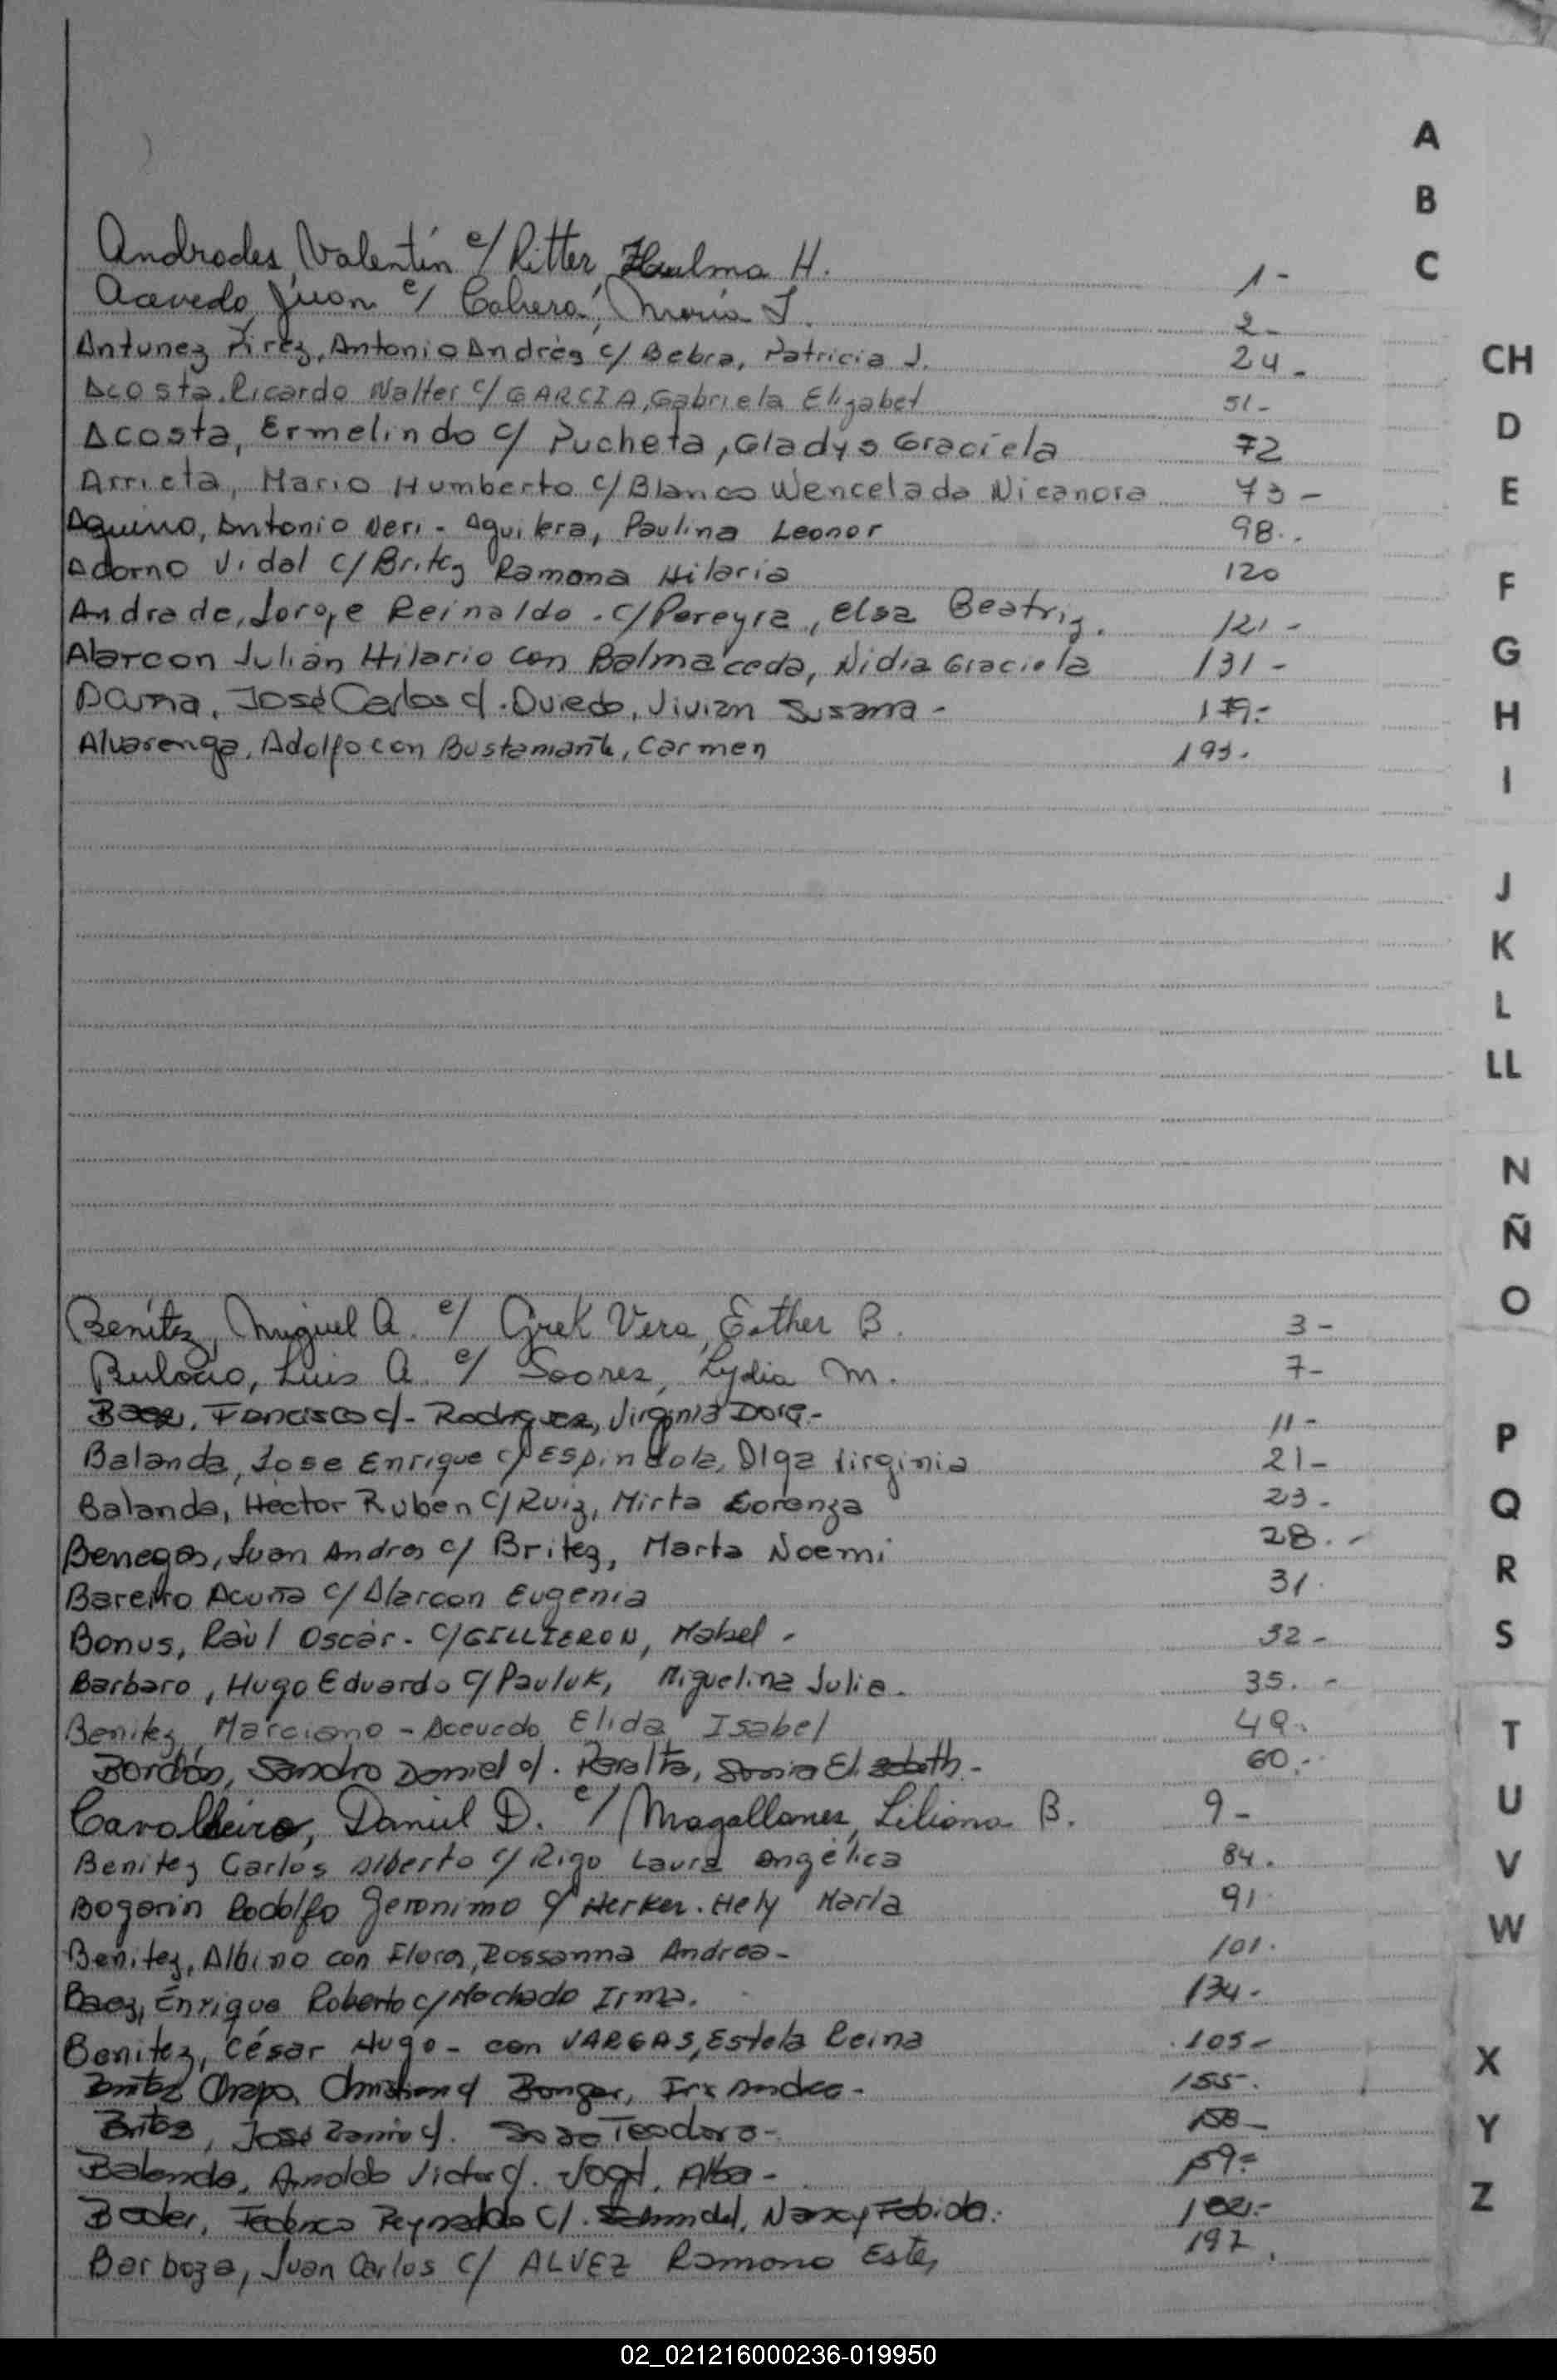 Andrades, Valentín c/ Ritter, Hulma H. 1-
Acevedo, Juan c/ Cabrera, María J. 2-
Antunez Pirez, Antonio Andrés c/ Bebra, Patricia J. 24-
Acosta. Ricardo Walter c/ GARCIA, Gabriela Elizabet 51-
Acosta, Ermelindo c/ Pucheta, Gladys Graciela 72
Arrieta, Mario Humberto c/ Blanco Wencelada Nicanora 73-
Aquino, Antonio Neri - Aguilera, Paulina Leonor 98.
Adorno Vidal c/ Britez Ramona Hilaria 120
Andrade, Jorge Reinaldo. c/ Pereyra, elsa Beatriz. 121-
Alarcon Julián Hilario con Balmaceda, Nidia Graciela 131-
José Carlos c/. Oviedo, Vivian Susana -
Alvarenga, Adolfo con Bustamante, Carmen 193.
Benítez, Miguel A. c/ Grek Vera, Esther B. 3-
Bulocio, Luis A. c/ Soares, Lydia M. 7-
Baez, Francisco c/- Rodriguez, Virginia Dora- 11-
Balanda, Jose Enrique c/ Espindola, Olga Virginia 21-
Balanda, Héctor Rubén c/ Ruiz, Mirta Lorenza 23-
Benegas, Juan Andres c/ Britez, Marta Noemi 28.-
Bareiro Acuña c/ Alarcon Eugenia 31.
Bonus, Raúl Oscar. c/ GILLIERON, Mabel - 32-
Barbaro, Hugo Eduardo c/ Pauluk, Miguelina Julia. 35.-
Benitez, Marciano - Acevedo, Elida Isabel 49.
Bordón, Sandro Daniel c/. Peralta, Sonia Elizabeth.- 60.-
Cavalheiro, Daniel D. c/ Magallanes, Liliana B. 9-
Benitez Carlos Alberto c/ Rigo Laura Angélica 84.
Bogarin Rodolfo Geronimo c/ Herker. Hely Marla 91
Benitez, Albino con Flores, Rossanna Andrea- 101.
Baez, Enrique Roberto c/ Machado Irma. 134-
Benitez, César Hugo - con VARGAS, Estela Reina 105-
Chapo, Christian c/ Andrea- 155.
Britez, José c/. Teodora- 158-
Balanda, Arnoldo Victor c/. Vogt, Alba- 159-
Bader, Federico Reynaldo c/. Schmidel, Nancy Fabiola.
Barboza, Juan Carlos c/ ALVEZ Ramona Ester 197
A
B
C
CH
D
E
F
G
H
I
J
K
L
LL
N
Ñ
O
P
Q
R
S
T
U
V
W
X
Y
Z
02_021216000236-019950